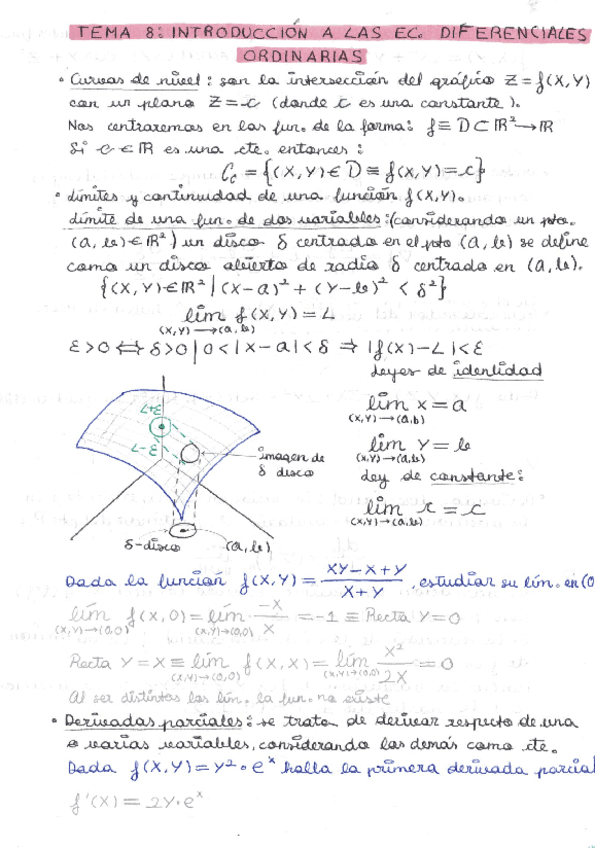 TEMA 8: INTRODUCCIÓN A LAS EC. DIFERENCIALES
ORDINARIAS
• Curvas de nivel: son la intersección del gráfico Z = f(X,Y)
con un plano Z = c (donde c es una constante).
Nos centraremos en las fun. de la forma: f ≡ D ⊂ ℝ² → ℝ
Si c ∈ ℝ es una cte. entonces:
C_c = {(X,Y) ∈ D ≡ f(X,Y) = c}
• Límites y continuidad de una función f(X,Y).
Límite de una fun. de dos variables: (considerando un pto.
(a,b) ∈ ℝ²) un disco δ centrado en el pto (a,b) se define
como un disco abierto de radio δ centrado en (a,b).
{(X,Y) ∈ ℝ² | (X-a)² + (Y-b)² < δ²}
lím f(X,Y) = L
(X,Y)→(a,b)
ε>0 ⟺ δ>0 | 0<|X-a|<δ ⇒ |f(X)-L|<ε
Leyes de identidad
lím x = a
(X,Y)→(a,b)
lím Y = b
(X,Y)→(a,b)
Ley de constante:
lím c = c
(X,Y)→(a,b)
L+ε
L-ε
imagen de
δ disco
δ-disco
(a,b)
Dada la función f(X,Y) = XY-X+Y / X+Y, estudiar su lím. en (0
lím f(X,0) = lím -X/X = -1 ≡ Recta Y=0
(X,Y)→(0,0) (X,Y)→(0,0)
Recta Y=X ≡ lím f(X,X) = lím X²/2X = 0
(X,Y)→(0,0) (X,Y)→(0,0)
Al ser distintos los lím. la fun. no existe
• Derivadas parciales: se trata de derivar respecto de una
o varias variables, considerando las demás como cte.
Dada f(X,Y) = Y² · eˣ halla la primera derivada parcial
f'(X) = 2Y · eˣ